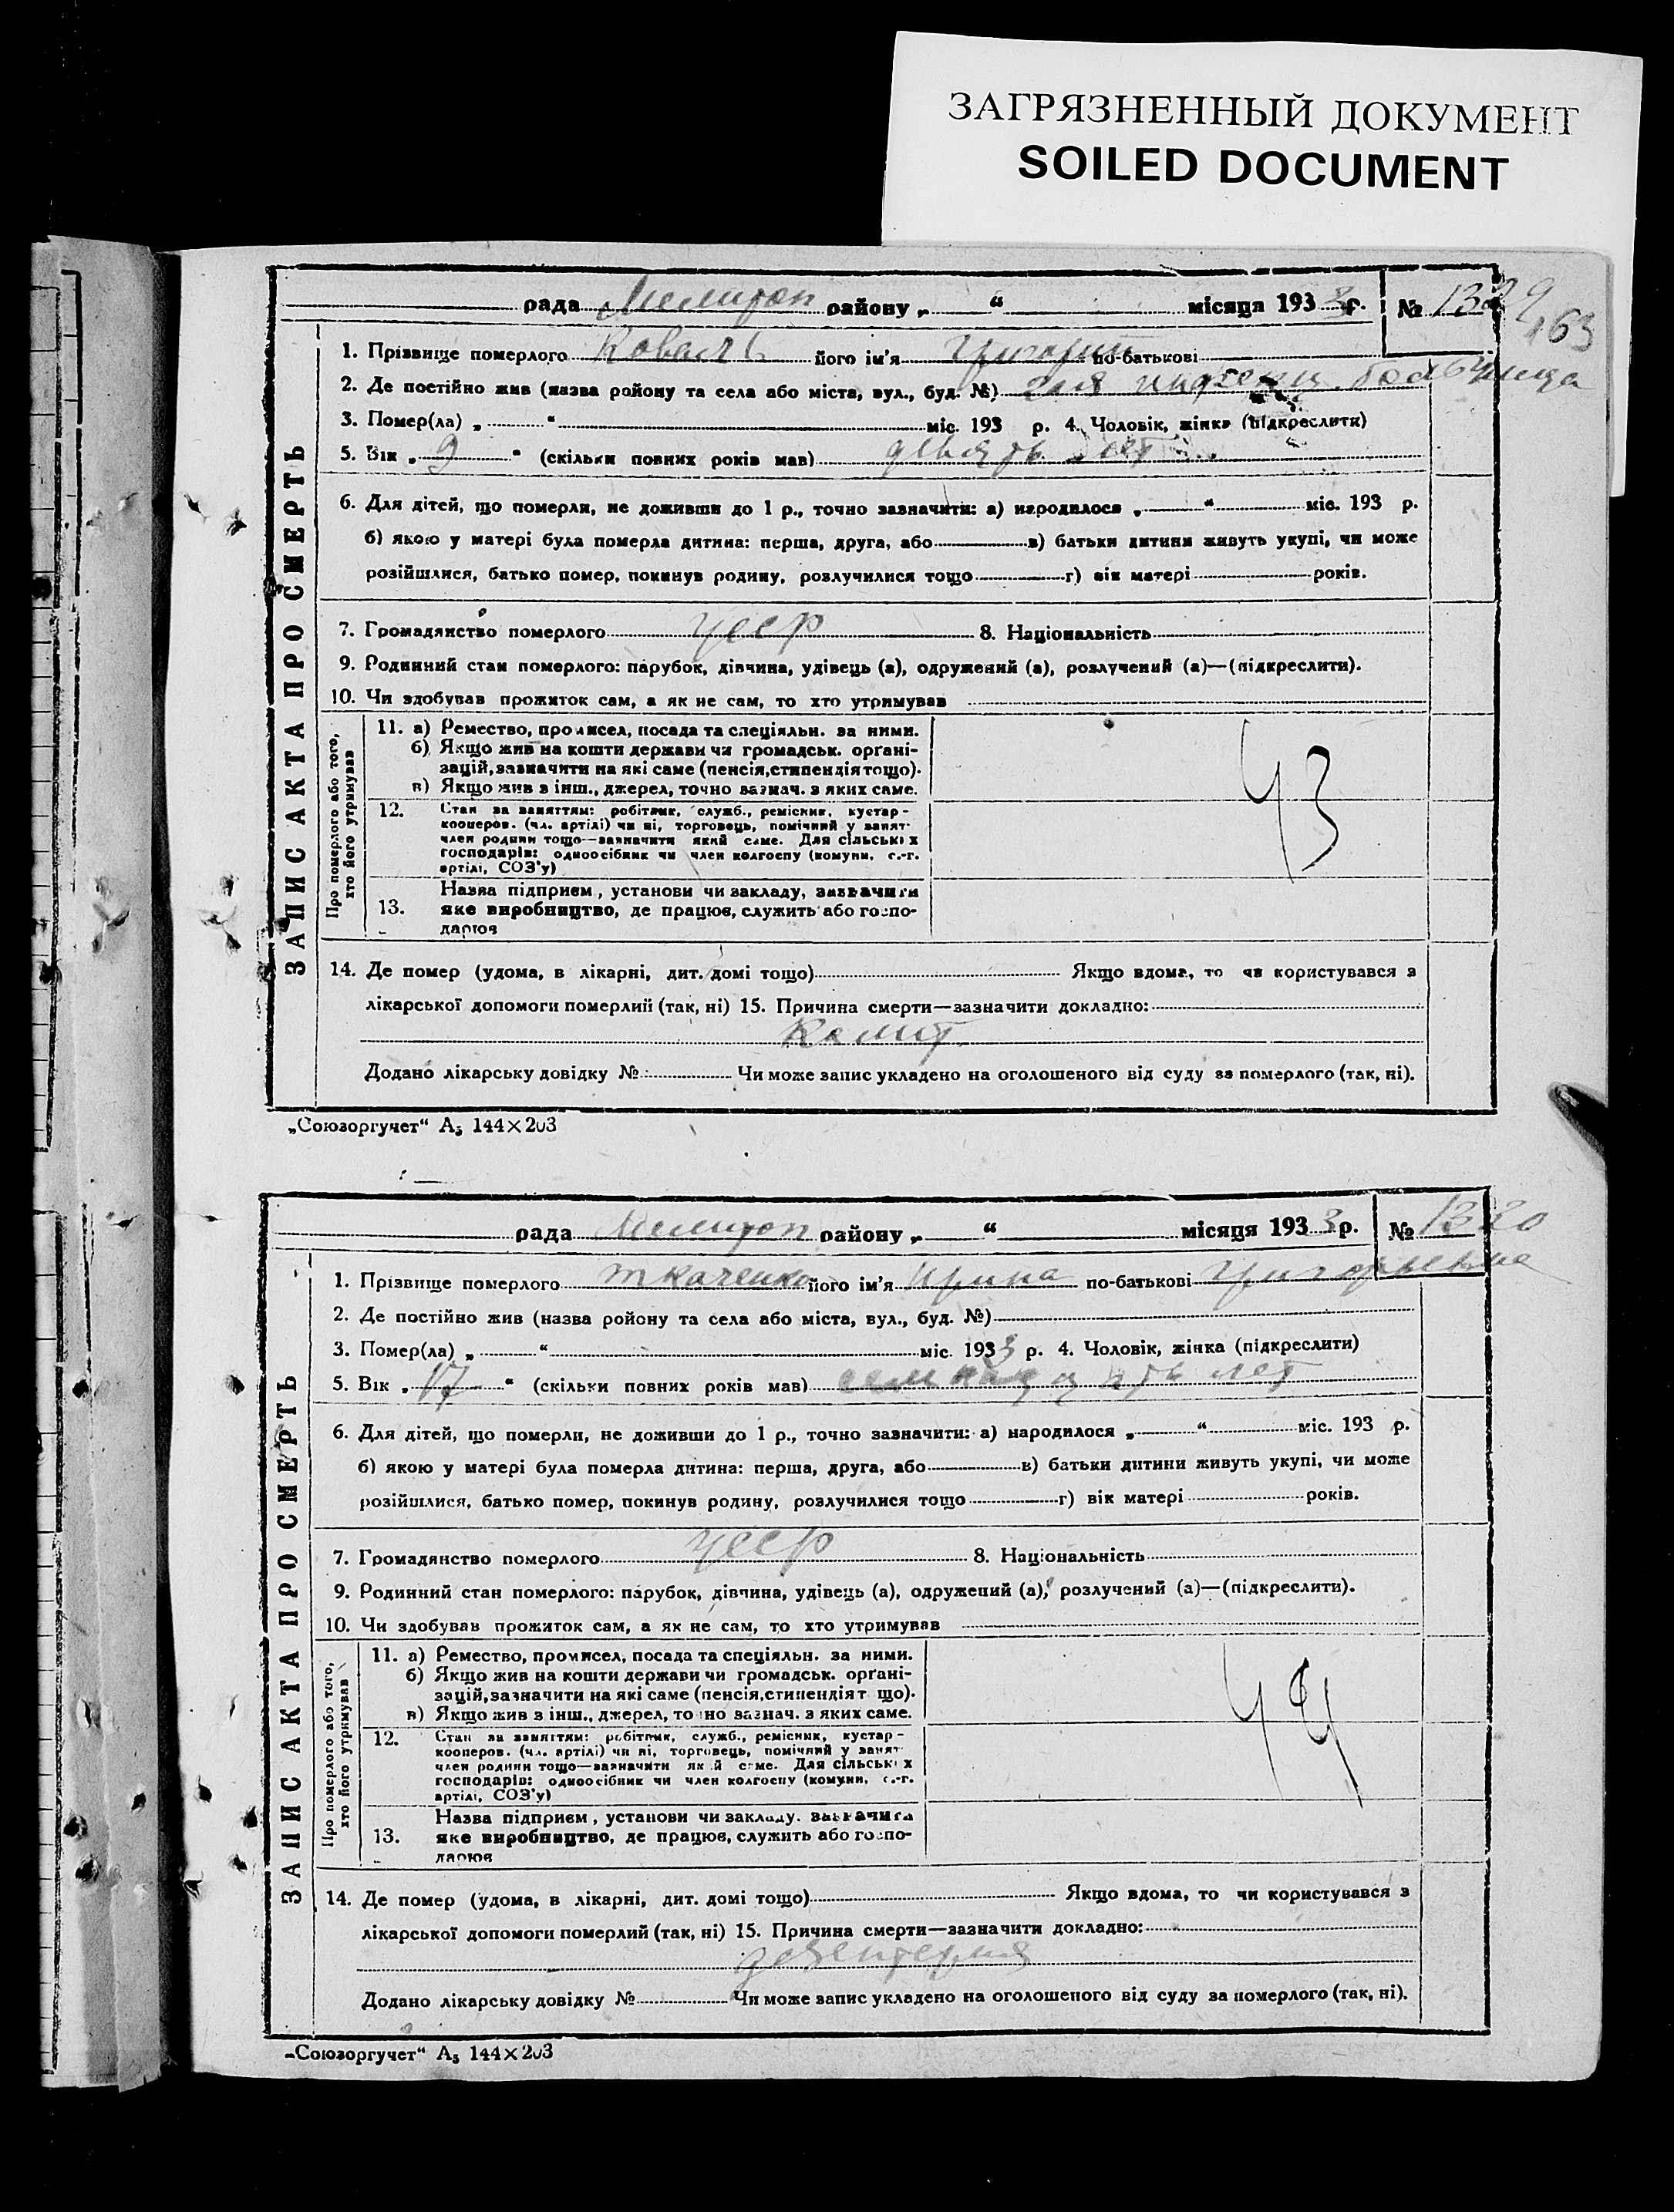 ЗАГРЯЗНЕННЫЙ ДОКУМЕНТ
SOILED DOCUMENT
рада Мелитоп району „ “ місяця 1933 р. № 1329
463
ЗАПИС АКТА ПРО СМЕРТЬ
1. Прізвище померлого Коваль його ім'я Григорий по-батькові
2. Де постійно жив (назва району та села або міста, вул., буд. №) больница
3. Помер(ла) „ “ міс. 193 р. 4. Чоловік, жінка (підкреслити)
5. Вік „ 9 “ (скільки повних років мав) девять лет
6. Для дітей, що померли, не доживши до 1 р., точно зазначити: а) народилося „ “ міс. 193 р.
б) якою у матері була померла дитина: перша, друга, або в) батьки дитини живуть укупі, чи може
розійшлися, батько помер, покинув родину, розлучилися тощо г) вік матері років.
7. Громадянство померлого усср 8. Національність
9. Родинний стан померлого: парубок, дівчина, удівець (а), одружений (а), розлучений (а)—(підкреслити).
10. Чи здобував прожиток сам, а як не сам, то хто утримував
Про померлого або того, хто його утримував
11. а) Ремество, промисел, посада та спеціяльн. за ними.
б) Якщо жив на кошти держави чи громадськ. орґані-
зацій, зазначити на які саме (пенсія, стипендія тощо).
в) Якщо жив з інш., джерел, точно зазнач. з яких саме.
43
12. Стан за заняттям: робітник, служб., ремісник, кустар-
кооперов. (чл. артілі) чи ні, торговець, помічний у занят-
член родини тощо—зазначити який саме. Для сільських
господарів: одноосібник чи член колгоспу (комуни, с.-г.
артілі, СОЗ'у)
13. Назва підприєм, установи чи закладу, зазначити
яке виробництво, де працює, служить або госпо-
дарює
14. Де помер (удома, в лікарні, дит. домі тощо) Якщо вдома, то чи користувався з
лікарської допомоги померлий (так, ні) 15. Причина смерти—зазначити докладно:
Калит.
Додано лікарську довідку № Чи може запис укладено на оголошеного від суду за померлого (так, ні).
„Союзоргучет“ А5 144×203
рада Мелитоп району „ “ місяця 1933 р. № 1330
ЗАПИС АКТА ПРО СМЕРТЬ
1. Прізвище померлого ткаченко його ім'я Ирина по-батькові Григорьевна
2. Де постійно жив (назва району та села або міста, вул., буд. №)
3. Помер(ла) „ “ міс. 1933 р. 4. Чоловік, жінка (підкреслити)
5. Вік „ 17 “ (скільки повних років мав) семнадцать лет
6. Для дітей, що померли, не доживши до 1 р., точно зазначити: а) народилося „ “ міс. 193 р.
б) якою у матері була померла дитина: перша, друга, або в) батьки дитини живуть укупі, чи може
розійшлися, батько помер, покинув родину, розлучилися тощо г) вік матері років.
7. Громадянство померлого усср 8. Національність
9. Родинний стан померлого: парубок, дівчина, удівець (а), одружений (а), розлучений (а)—(підкреслити).
10. Чи здобував прожиток сам, а як не сам, то хто утримував
Про померлого або того, хто його утримував
11. а) Ремество, промисел, посада та спеціяльн. за ними.
б) Якщо жив на кошти держави чи громадськ. орґані-
зацій, зазначити на які саме (пенсія, стипендія т що).
в) Якщо жив з інш., джерел, точно зазнач. з яких саме.
44
12. Стан за заняттям: робітник, служб., ремісник, кустар-
кооперов. (чл. артілі) чи ні, торговець, помічний у занят-
член родини тощо—зазначити який саме. Для сільських
господарів: одноосібник чи член колгоспу (комуни, с.-г.
артілі, СОЗ'у)
13. Назва підприєм, установи чи закладу, зазначити
яке виробництво, де працює, служить або госпо-
дарює
14. Де помер (удома, в лікарні, дит. домі тощо) Якщо вдома, то чи користувався з
лікарської допомоги померлий (так, ні) 15. Причина смерти—зазначити докладно:
дезентерия
Додано лікарську довідку № Чи може запис укладено на оголошеного від суду за померлого (так, ні).
„Союзоргучет“ А5 144×203